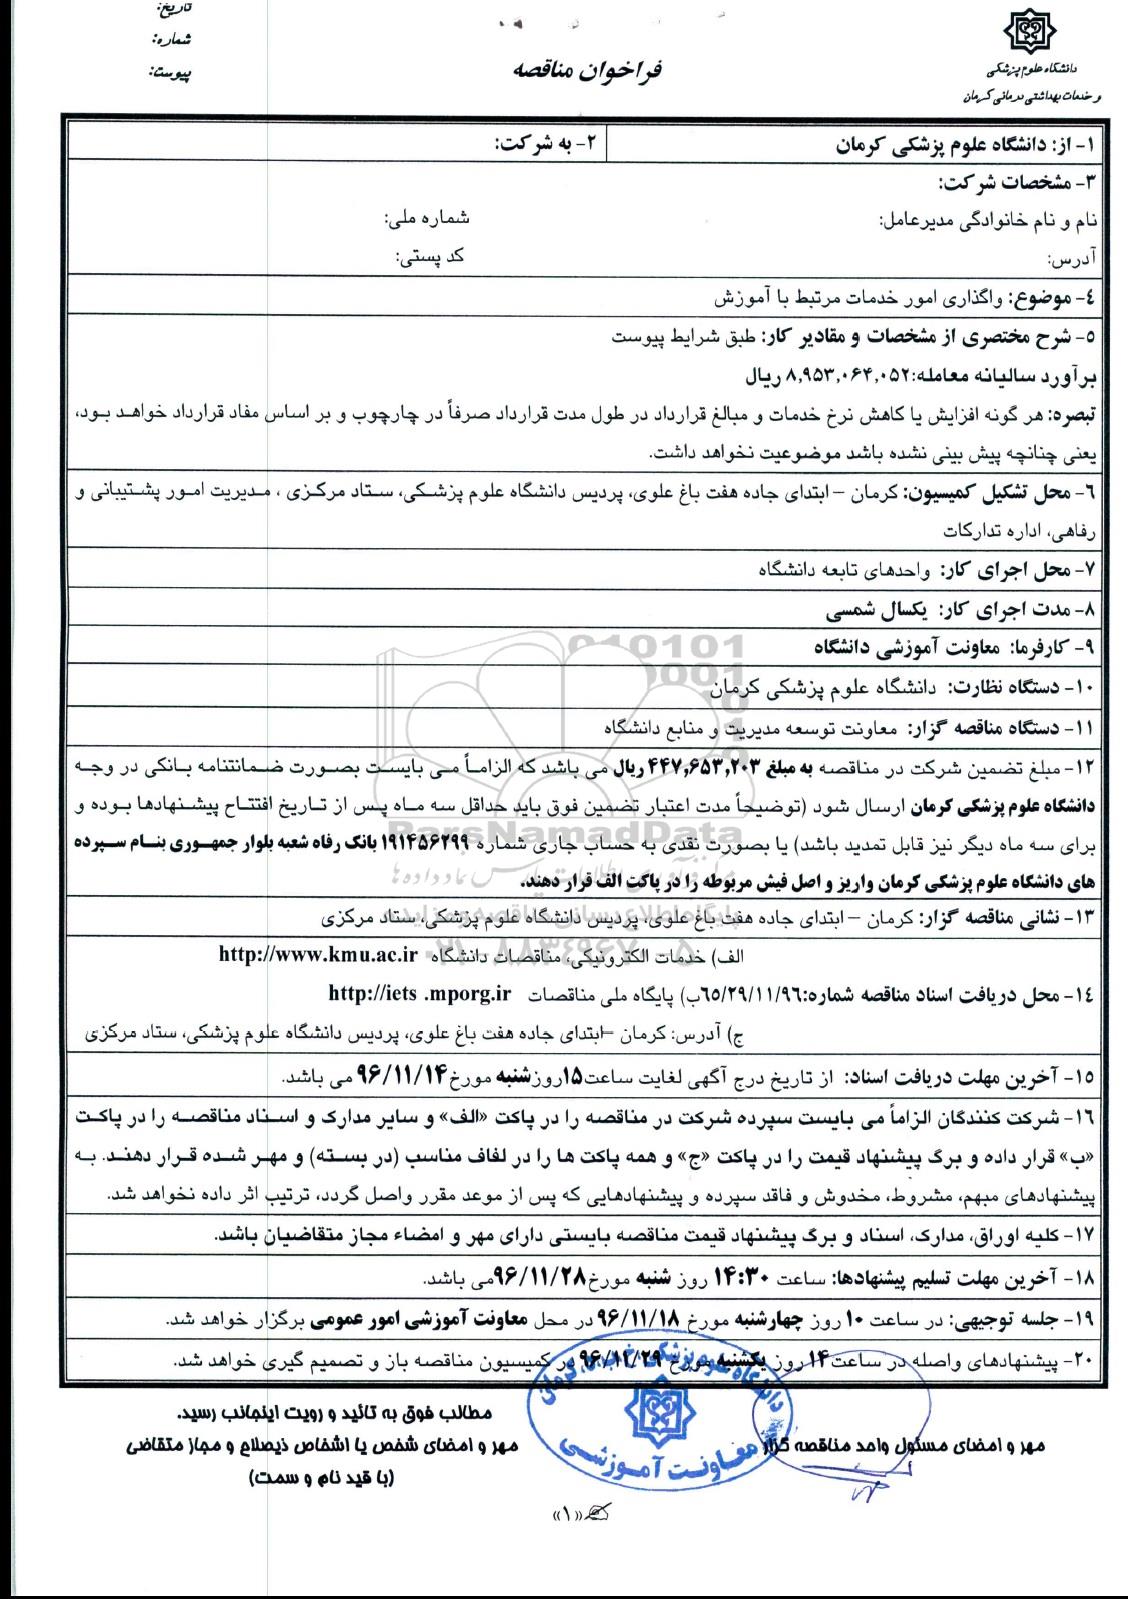 تاریخ:
شماره:
پیوست:
دانشگاه علوم پزشکی
و خدمات بهداشتی درمانی کرمان
فراخوان مناقصه
۱- از: دانشگاه علوم پزشکی کرمان
۲- به شرکت:
۳- مشخصات شرکت:
نام و نام خانوادگی مدیرعامل: شماره ملی:
آدرس: کد پستی:
٤- موضوع: واگذاری امور خدمات مرتبط با آموزش
٥- شرح مختصری از مشخصات و مقادیر کار: طبق شرایط پیوست
برآورد سالیانه معامله:۸,۹۵۳,۰۶۴,۰۵۲ ریال
تبصره: هر گونه افزایش یا کاهش نرخ خدمات و مبالغ قرارداد در طول مدت قرارداد صرفاً در چارچوب و بر اساس مفاد قرارداد خواهد بود،
یعنی چنانچه پیش بینی نشده باشد موضوعیت نخواهد داشت.
٦- محل تشکیل کمیسیون: کرمان – ابتدای جاده هفت باغ علوی، پردیس دانشگاه علوم پزشکی، ستاد مرکزی ، مدیریت امور پشتیبانی و
رفاهی، اداره تدارکات
۷- محل اجرای کار: واحدهای تابعه دانشگاه
۸- مدت اجرای کار: یکسال شمسی
۹- کارفرما: معاونت آموزشی دانشگاه
۱۰- دستگاه نظارت: دانشگاه علوم پزشکی کرمان
۱۱- دستگاه مناقصه گزار: معاونت توسعه مدیریت و منابع دانشگاه
۱۲- مبلغ تضمین شرکت در مناقصه به مبلغ ۴۴۷,۶۵۳,۲۰۳ ریال می باشد که الزاماً می بایست بصورت ضمانتنامه بانکی در وجه
دانشگاه علوم پزشکی کرمان ارسال شود (توضیحاً مدت اعتبار تضمین فوق باید حداقل سه ماه پس از تاریخ افتتاح پیشنهادها بوده و
برای سه ماه دیگر نیز قابل تمدید باشد) یا بصورت نقدی به حساب جاری شماره ۱۹۱۴۵۶۲۹۹ بانک رفاه شعبه بلوار جمهوری بنام سپرده
های دانشگاه علوم پزشکی کرمان واریز و اصل فیش مربوطه را در پاکت الف قرار دهند.
۱۳- نشانی مناقصه گزار: کرمان – ابتدای جاده هفت باغ علوی، پردیس دانشگاه علوم پزشکی، ستاد مرکزی
الف) خدمات الکترونیکی، مناقصات دانشگاه http://www.kmu.ac.ir
۱٤- محل دریافت اسناد مناقصه شماره:٦٥/۲۹/۱۱/۹٦ب) پایگاه ملی مناقصات http://iets .mporg.ir
ج) آدرس: کرمان –ابتدای جاده هفت باغ علوی، پردیس دانشگاه علوم پزشکی، ستاد مرکزی
۱٥- آخرین مهلت دریافت اسناد: از تاریخ درج آگهی لغایت ساعت۱۵روزشنبه مورخ۹۶/۱۱/۱۴ می باشد.
۱٦- شرکت کنندگان الزاماً می بایست سپرده شرکت در مناقصه را در پاکت «الف» و سایر مدارک و اسناد مناقصه را در پاکت
«ب» قرار داده و برگ پیشنهاد قیمت را در پاکت «ج» و همه پاکت ها را در لفاف مناسب (در بسته) و مهر شده قرار دهند. به
پیشنهادهای مبهم، مشروط، مخدوش و فاقد سپرده و پیشنهادهایی که پس از موعد مقرر واصل گردد، ترتیب اثر داده نخواهد شد.
۱۷- کلیه اوراق، مدارک، اسناد و برگ پیشنهاد قیمت مناقصه بایستی دارای مهر و امضاء مجاز متقاضیان باشد.
۱۸- آخرین مهلت تسلیم پیشنهادها: ساعت ۱۴:۳۰ روز شنبه مورخ۹۶/۱۱/۲۸می باشد.
۱۹- جلسه توجیهی: در ساعت ۱۰ روز چهارشنبه مورخ ۹۶/۱۱/۱۸ در محل معاونت آموزشی امور عمومی برگزار خواهد شد.
۲۰- پیشنهادهای واصله در ساعت۱۴ روز یکشنبه مورخ ۹۶/۱۱/۲۹ در کمیسیون مناقصه باز و تصمیم گیری خواهد شد.
مطالب فوق به تائید و رویت اینجانب رسید.
مهر و امضای مسئول واحد مناقصه گزار
مهر و امضای شخص یا اشخاص ذیصلاح و مجاز متقاضی
(با قید نام و سمت)
معاونت آموزشی
«۱»
ParsNamadData